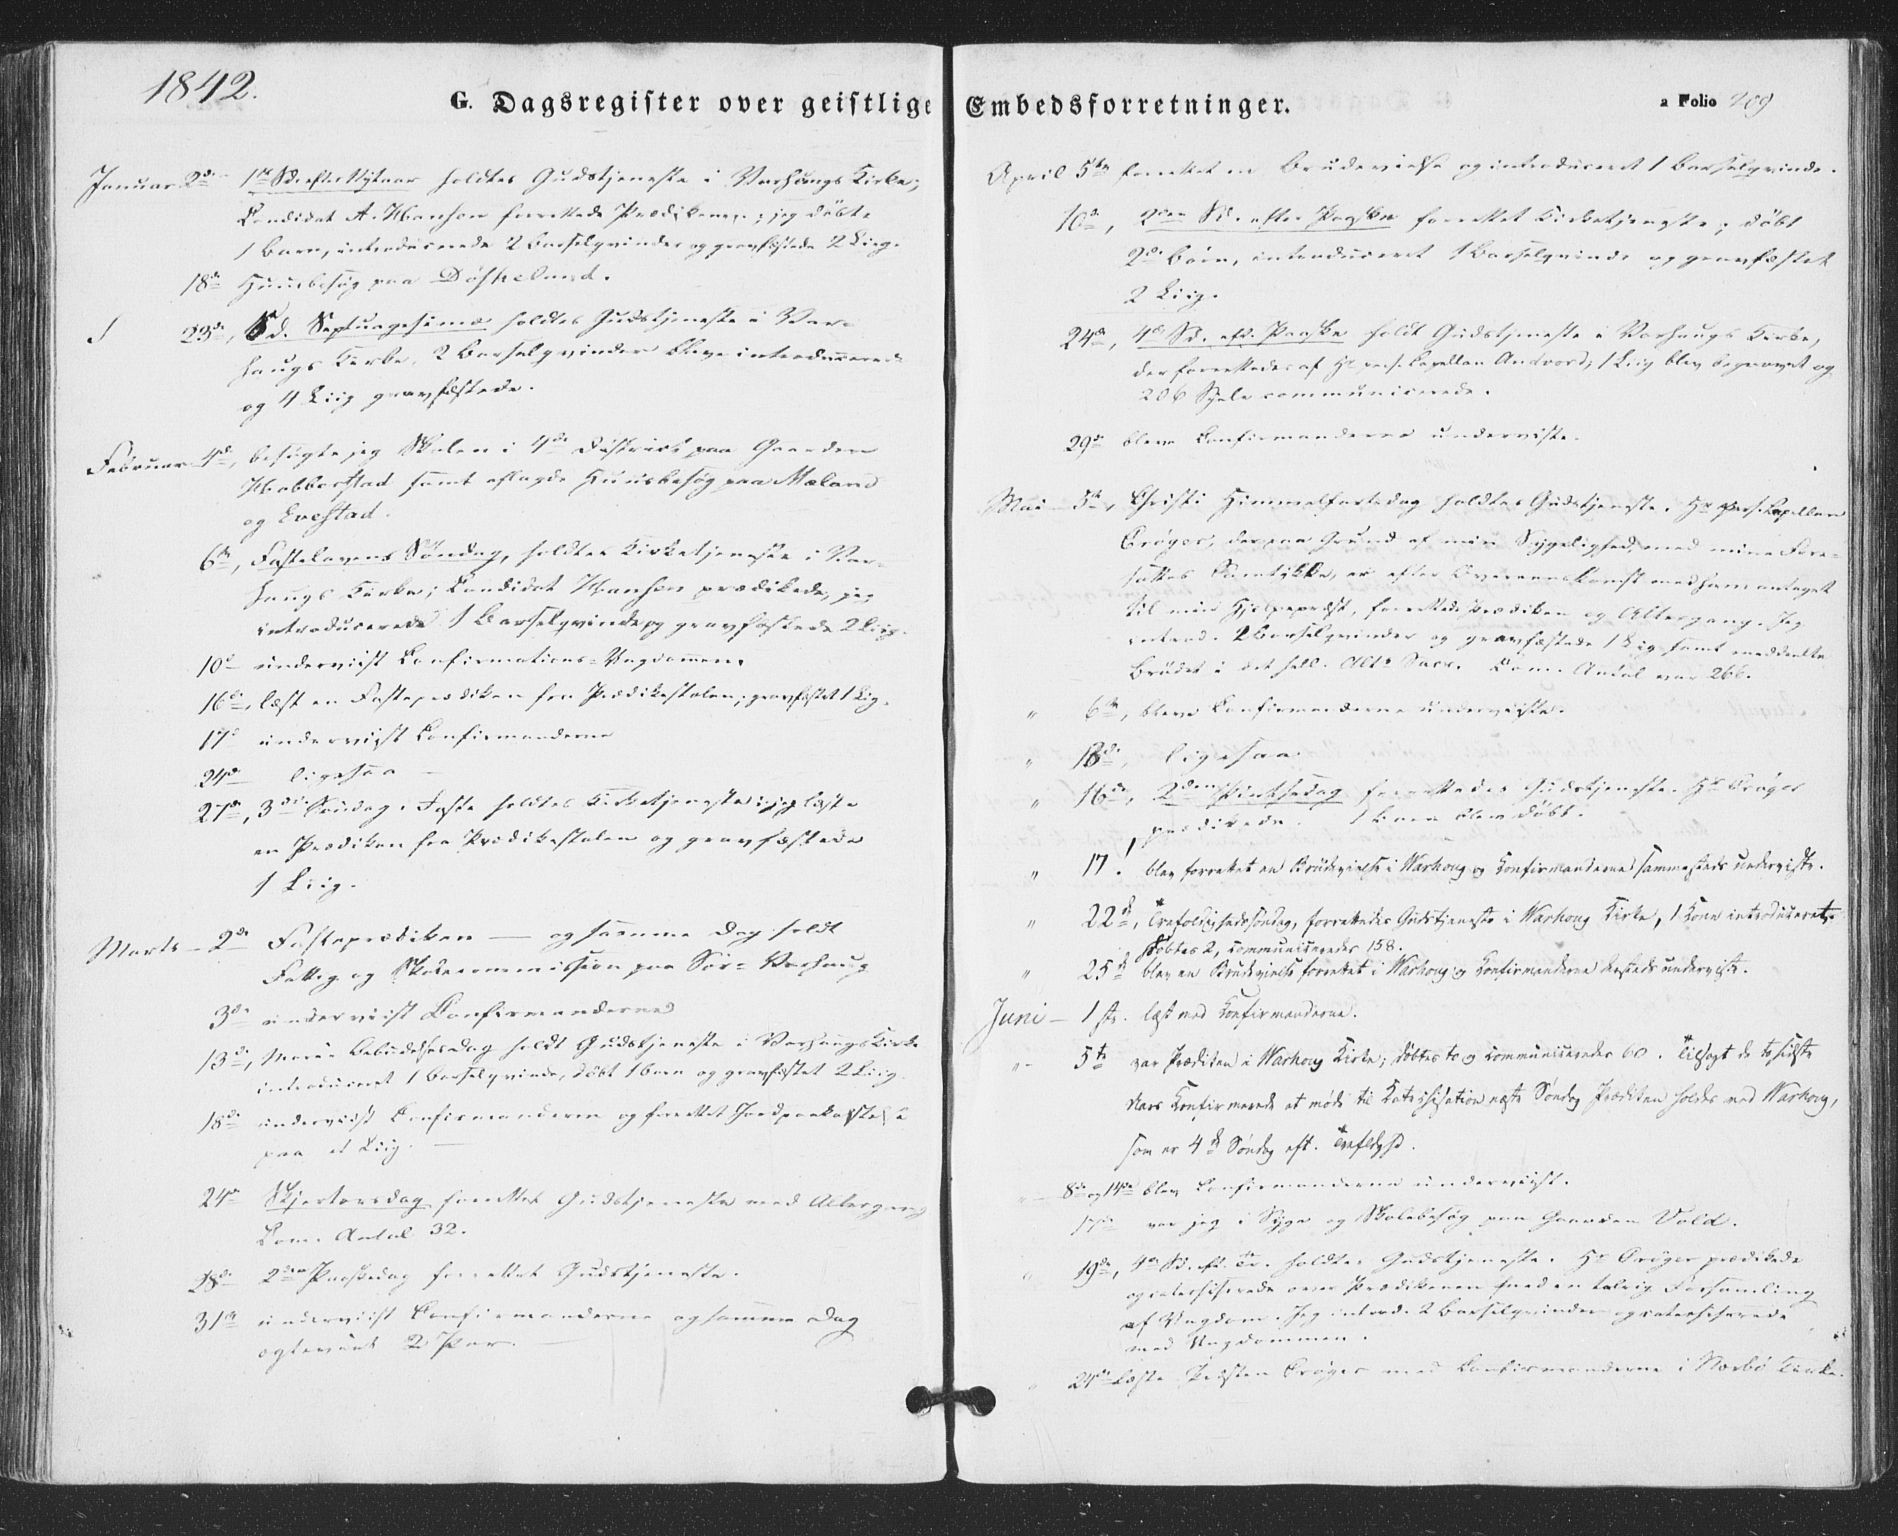 1842.
G. Dagsregister over geistlige
Januar 2de 1ste Sd. efter Nytaar holdtes Gudstjeneste i Varhougs Kirke;
Candidat A. Hansen forrettede Prædikenen; jeg döbte
1 Barn, introducerede 2 Barselqvinder og gravfæstede 2 Liig.
18de Huusbesög paa Döskeland.
23de, Sd. Septuagesima holdtes Gudstjeneste i Var-
haugs Kirke. 2 Barselqvinder bleve introducerede
og 4 Liig gravfæstede.
Februar 4de, besögte jeg Skolen i 4de District paa Gaarden
Habberstad samt aflagde Huusbesög paa Mæland
og Evestad.
6te, Fastelavens Söndag, holdtes Kirketjeneste i Var-
haugs Kirke; Candidat Hansen prædikede, jeg
introducerede 1 Barselqvinde og gravfæstede 2 Liig.
10de underviist Confirmations-Ungdommen.
16de, læst en Fasteprædiken fra Prædikestolen; gravfæstet 1 Liig.
17de underviist Confirmanderne
24de ligesaa
27de, 3die Söndag i Faste holdtes Kirketjeneste; jeg læste
en Prædiken fra Prædikestolen og gravfæstede
1 Liig.
Marts - 2de Fasteprædiken — og samme Dag holdt
Fattig og Skolecommission paa Sör-Varhaug
3de underviist Confirmanderne
13de, Mariæ Bebudelsesdag holdt Gudstjeneste i Varhaugs Kirke
introduceret 1 Barselqvinde, döbt 1 Barn og gravfæstet 2 Liig.
18de underviist Confirmanderne og forrettet Jordpaakastelse
paa et Liig. —
24de Skjertorsdag forrettet Gudstjeneste med Altergang
Com. Antal 32.
28de 2den Paaskedag forrettet Gudstjeneste.
31te underviist Confirmanderne og samme Dag
ægteviet 2 Par. —
Embedsforretninger.
a Folio 209
April 5te forrettet en Brudevielse og introduceret 1 Barselqvinde.
10de, 2den Sd. efter Paaske forrettet Kirketjeneste; döbt
2de Börn, introduceret 1 Barselqvinde og gravfæstet
2 Liig.
24de, 4de Sd. eft. Paaske holdt Gudstjeneste i Varhaugs Kirke,
der forrettedes af Hr. pers. Capellan Andvord; 1 Liig blev begravet og
206 Sjele communicerede.
29de bleve Confirmanderne underviste.
Mai - 5te, Christi Himmelfartsdag holdtes Gudstjeneste. Hr. pers. Capellan
Cröger, der paa Grund af min Sygelighed, med mine Fore-
sattes Samtykke, er efter Overeenskomst med ham antaget
til min Hjelpepræst, forrettede Prædiken og Altergang. Jeg
introd. 2 Barselqvinder og gravfæstede 1 Liig samt meddeelte
Brödet i det hell. Alt. Sacr. Com. Antal var 266.
" 6te, bleve Confirmanderne underviste.
" 13de, ligesaa
" 16de, 2den Pintsedag forrettedes Gudstjeneste. Hr. Cröger
prædikede. 1 Barn blev döbt.
" 17. blev forrettet en Brudevielse i Warhoug og Confirmanderne sammesteds underviste.
" 22d, Trefoldighedssöndag, forrettedes Gudstjeneste i Warhoug Kirke, 1 Kone introduceret,
döbtes 2, communicerede 158.
" 25d blev en Brudevielse forrettet i Warhoug og Confirmanderne dersteds underviste.
Juni - 1ste. læst med Confirmanderne.
" - 5te var Prædiken i Warhoug Kirke; döbtes to og communicerede 60. Tilsagt de to sidste
Aars Confirmerede at möde til Katechisation næste Söndag Prædiken holdes ved Warhoug,
som er 4d Söndag eft. Trefoldghd.
" 8de og 14de blev Confirmanderne underviist.
17de var jeg i Syge og Skolebesög paa Gaarden Vold.
" 19de, 4de Sd. eft. Tr. holdtes Gudstjeneste. Hr. Cröger prædikede
og catechiserede over Prædikenen med en talrig Forsamling
af Ungdom. Jeg introd. 2 Barselqvinder og catechiserede
med Ungdommen.
" 24de læste Præsten Cröger med Confirmanderne i Nærbö Kirke.